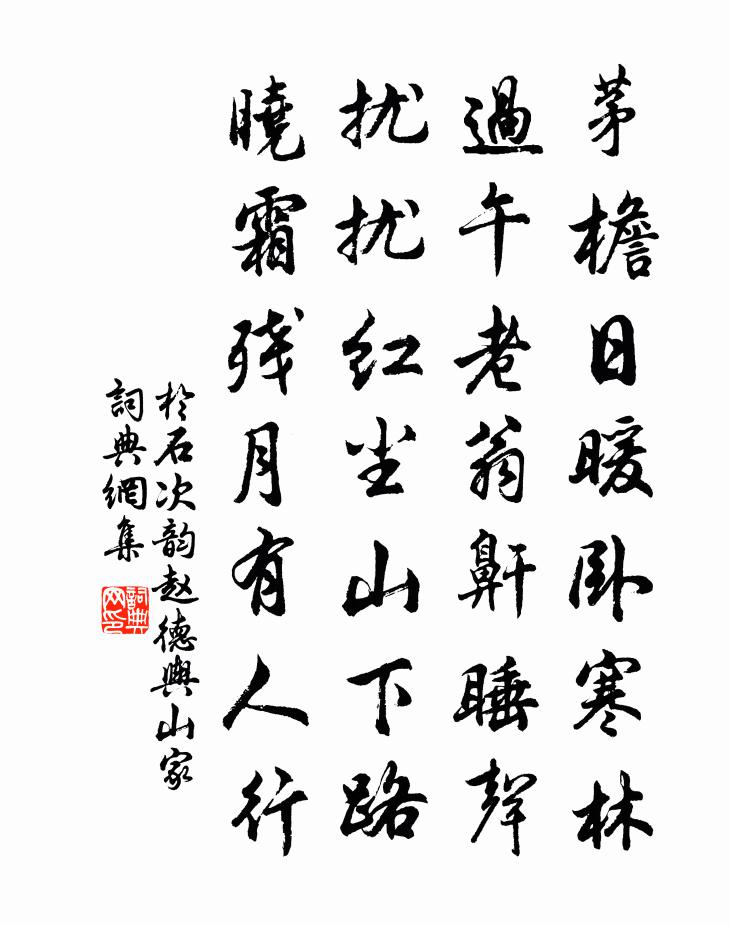 茅檐日暖卧寒林
過午老翁鼾睡聲
扰扰红尘山下路
曉霜残月有人行
於石次韵赵德輿山家
詞典網集
詞典网印